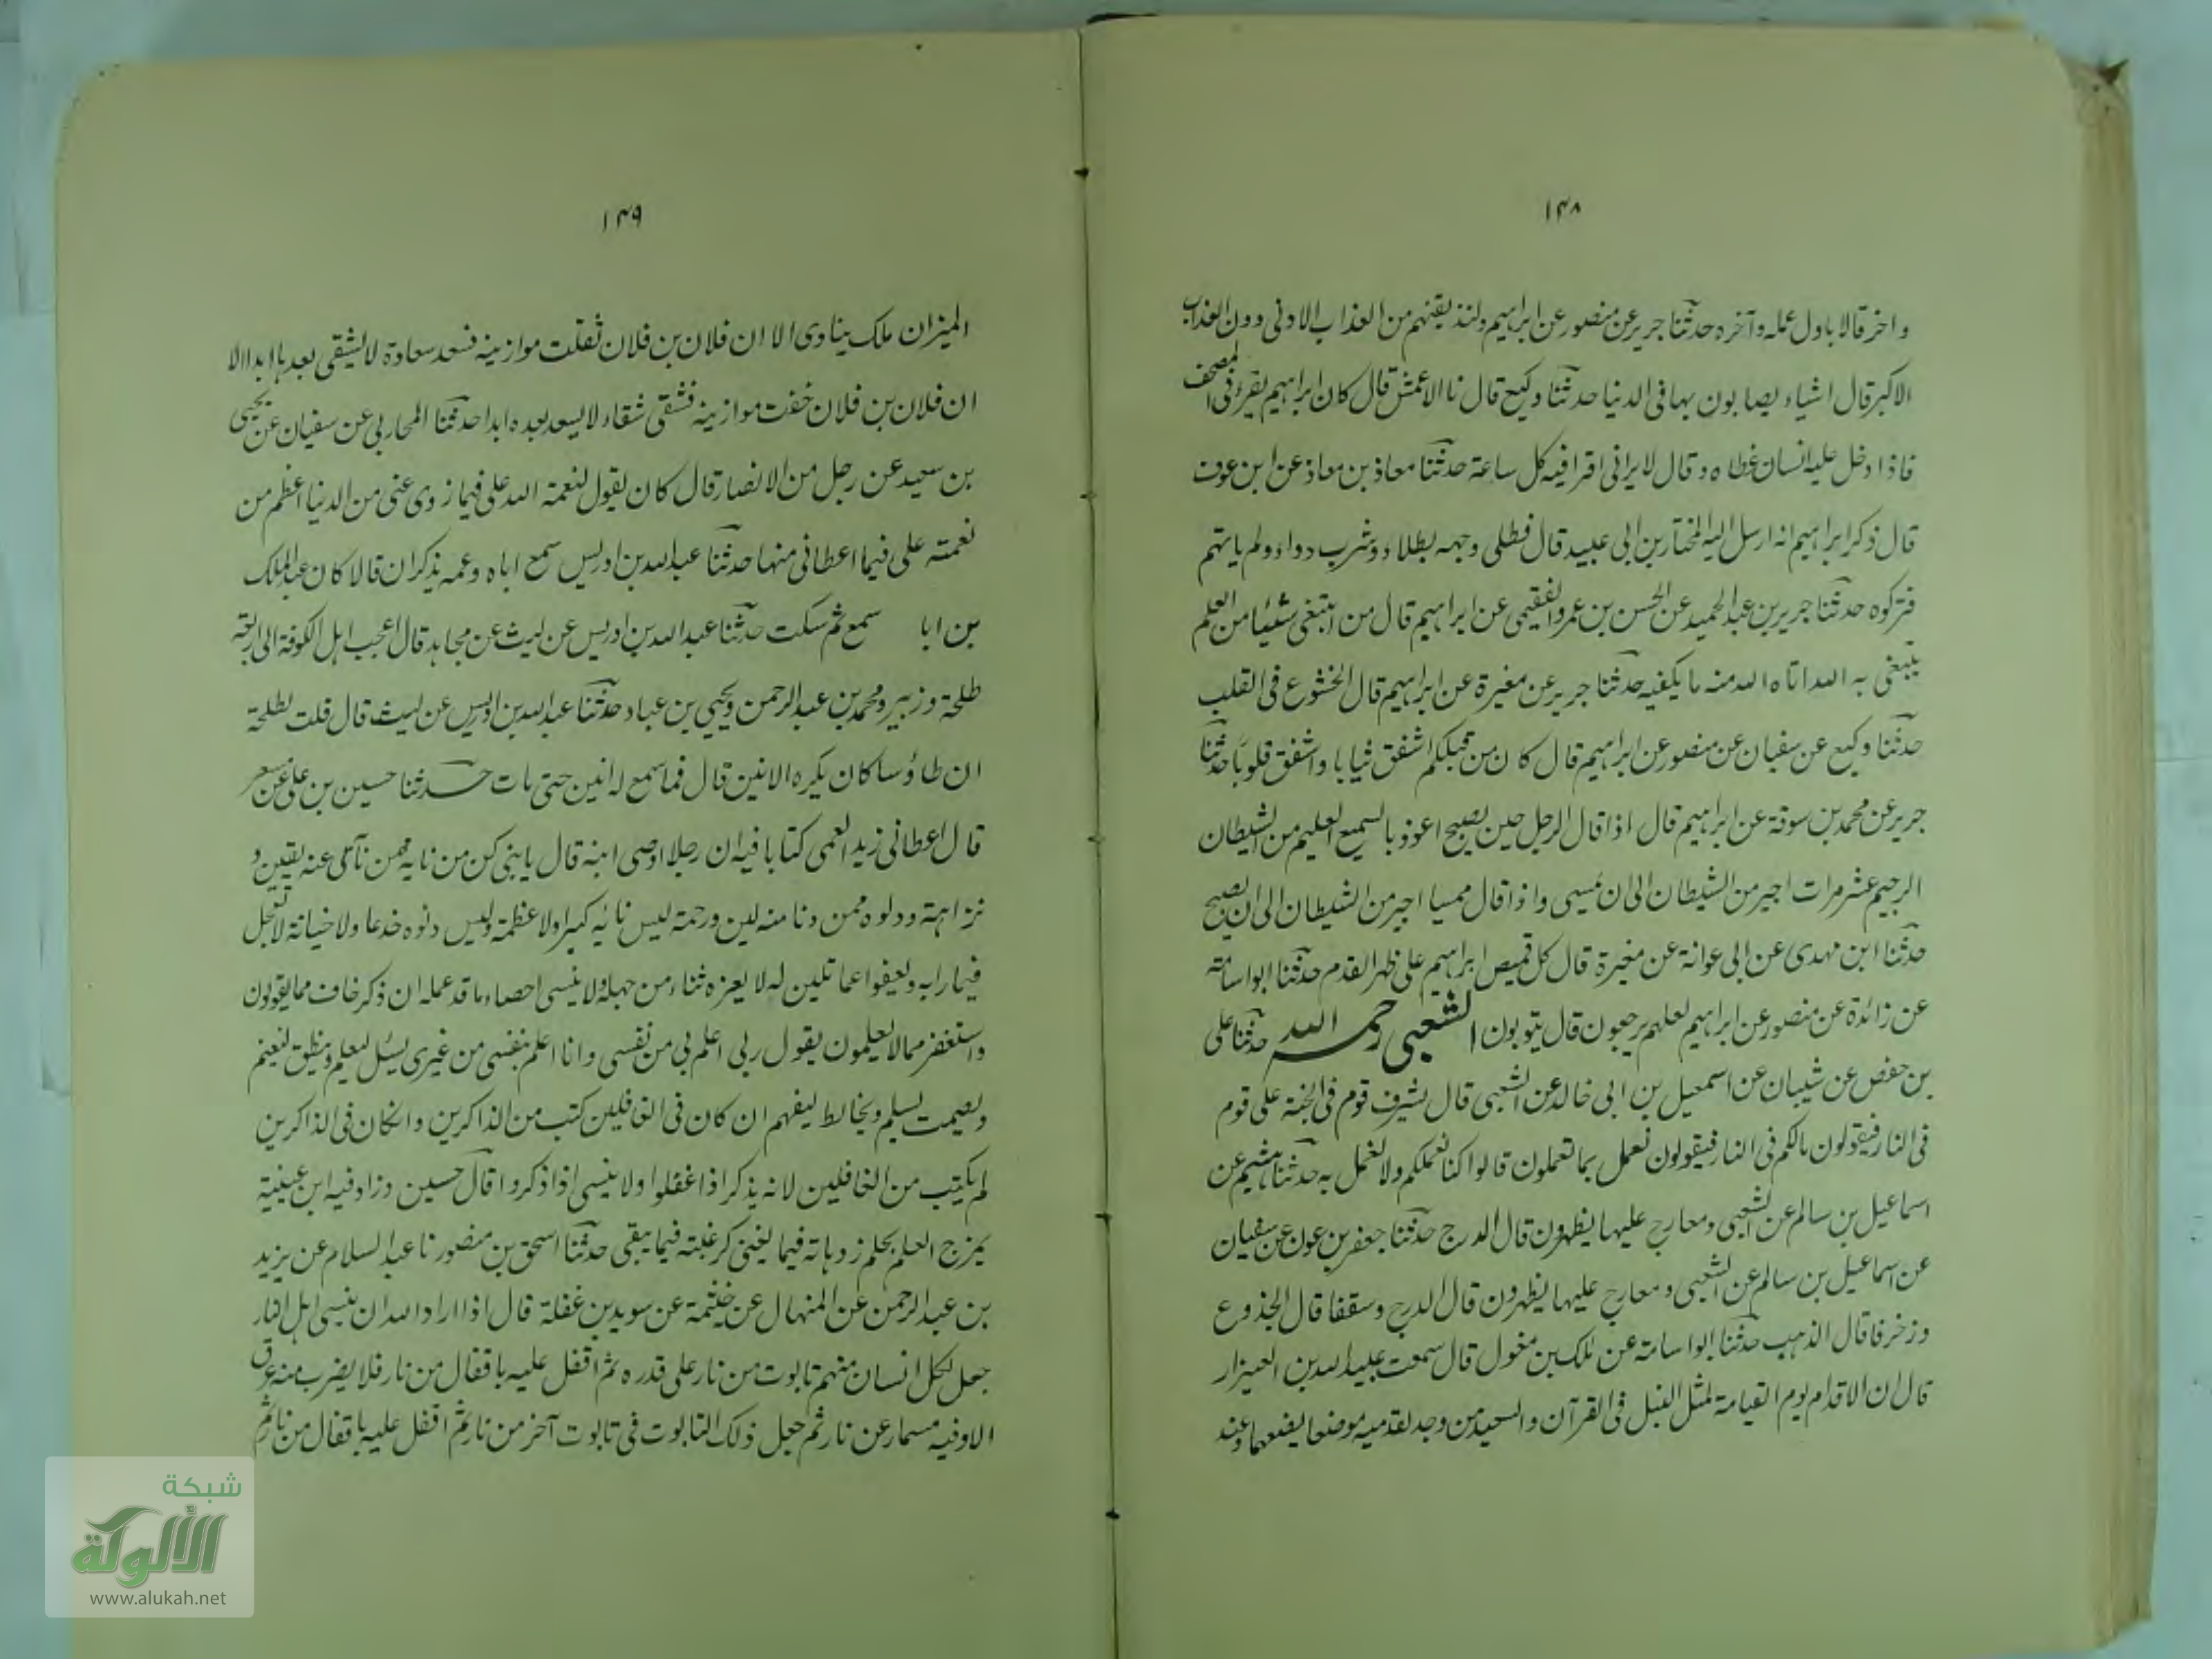 ١٤٨
و اخر قالا باول عمله و آخره حدثنا جرير عن منصور عن ابراهيم ولنذيقنهم من العذاب الادنى دون العذاب
الاكبر قال اشياء يصابون بها فى الدنيا حدثنا وكيع قال نا الاعمش قال كان ابراهيم يقرأ فى المصحف
فاذا دخل عليه انسان غطاه وقال لا يرانى اقرا فيه كل ساعة حدثنا معاذ بن معاذ عن ابن عون
قال ذكر ابراهيم انه ارسل اليه المختار بن ابى عبيد قال فطلى وجهه بطلاء وشرب دواء ولم ياتهم
فتركوه حدثنا جرير بن عبد الحميد عن الحسن بن عمرو الفقيمى عن ابراهيم قال من ابتغى شيئا من العلم
يبتغى به الله اتاه الله منه ما يكفيه حدثنا جرير عن مغيرة عن ابراهيم قال الخشوع فى القلب
حدثنا وكيع عن سفيان عن منصور عن ابراهيم قال كان من قبلكم اشفق ثيابا واشفق قلوبا حدثنا
جرير عن محمد بن سوقة عن ابراهيم قال اذا قال الرجل حين يصبح اعوذ بالسميع العليم من الشيطان
الرجيم عشر مرات اجير من الشيطان الى ان يمسى واذا قال ممسيا اجير من الشيطان الى ان يصبح
حدثنا ابن مهدى عن ابى عوانة عن مغيرة قال كل قميص ابراهيم على ظهر القدم حدثنا ابو اسامة
عن زائدة عن منصور عن ابراهيم لعلهم يرجعون قال يتوبون الشعبى رحمه الله حدثنا على
بن حفص عن شيبان عن اسمعيل بن ابى خالد عن الشعبى قال يشرف قوم فى الجنة على قوم
فى النار فيقولون مالكم فى النار فيقولون نعمل بما تعملون قالوا كنا نعلمكم ولا نعمل به حدثنا هشيم عن
اسماعيل بن سالم عن الشعبى ومعارج عليها يظهرون قال الدرج حدثنا جعفر بن عون عن سفيان
عن اسماعيل بن سالم عن الشعبى ومعارج عليها يظهرون قال الدرج وسقفا قال الجذوع
وزخرفا قال الذهب حدثنا ابو اسامة عن ملك بن مغول قال سمعت عبيد الله بن العيزار
قال ان الاقدام يوم القيامة لمثل النبل فى القرآن والسعيد من وجد لقدميه موضعا يضعهما وعند
١٤٩
الميزان ملك ينادى الا ان فلان بن فلان ثقلت موازينه فسعد سعادة لا يشقى بعدها ابدا الا
ان فلان بن فلان خفت موازينه فشقى شقاء لا يسعد بعده ابدا حدثنا المحاربى عن سفيان عن يحيى
بن سعيد عن رجل من الانصار قال كان يقول لنعمة الله على فيما زوى عنى من الدنيا اعظم من
نعمته على فيما اعطانى منها حدثنا عبد الله بن ادريس سمع اباه وعمه يذكران قالا كان عبد الملك
بن ابا سمع ثم سكت حدثنا عبد الله بن ادريس عن ليث عن مجاهد قال اعجب اهل الكوفة الى اربعة
طلحة وزبير ومحمد بن عبد الرحمن ويحيى بن عباد حدثنا عبد الله بن ادريس عن ليث قال قلت لطلحة
ان طاؤسا كان يكره الانين قال فما سمع له انين حتى مات حدثنا حسين بن على عن معمر
قال اعطانى زيد العمى كتابا فيه ان رجلا اوصى ابنه قال يا بنى كن من نايه ممن نآى عنه يقين و
نزاهة ودلوه ممن دنا منه لين ورحمة ليس نائه كبرا ولا عظمة وليس دنوه خدعا ولا خيانة لا يعجل
فيما رابه ويعفوا عما تلين له لا يعزه ثناء من جهله ولا ينسى احصاء ما قد عمله ان ذكر خاف مما يقولون
واستغفر مما لا يعلمون يقول ربى اعلم بى من نفسى وانا اعلم بنفسى من غيرى يسئل ليعلم وينطق ليغنم
ويصمت ليسلم ويخالط ليفهم ان كان فى الغافلين كتب من الذاكرين وانكان فى الذاكرين
لم يكتب من الغافلين لانه يذكر اذا غفلوا ولا ينسى اذا ذكروا قال حسين وزاد فيه ابن عيينة
يمزج العلم بحلم زهاته فيما يفنى كرغبته فيما يبقى حدثنا اسحق بن منصور نا عبد السلام عن يزيد
بن عبد الرحمن عن المنهال عن خيثمة عن سويد بن غفلة قال اذا اراد الله ان ينسى اهل النار
جعل لكل انسان منهم تابوت من نار على قدره ثم اقفل عليه باقفال من نار فلا يضرب منه عرق
الا وفيه مسمار عن نار ثم جعل ذلك التابوت فى تابوت آخر من نار ثم اقفل عليه باقفال من نار ثم
شبكة
الألوكة
www.alukah.net